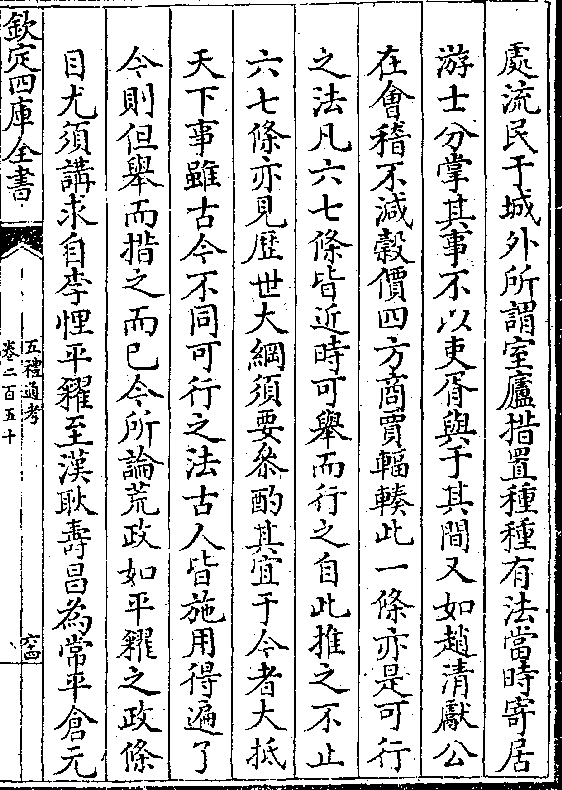 處流民于城外所謂室廬措置種種有法當時寄居
游士分掌其事不以吏胥與于其間又如趙清獻公
在會稽不減穀價四方商賈輻輳此一條亦是可行
之法凡六七條皆近時可舉而行之自此推之不止
六七條亦見歴世大綱須要叅酌其宜于今者大抵
天下事雖古今不同可行之法古人皆施用得遍了
今則但舉而措之而已今所論荒政如平糴之政條
目尤須講求自李悝平糴至漢耿壽昌為常平倉元
欽定四庫全書
五禮通考
卷二百五十
六四